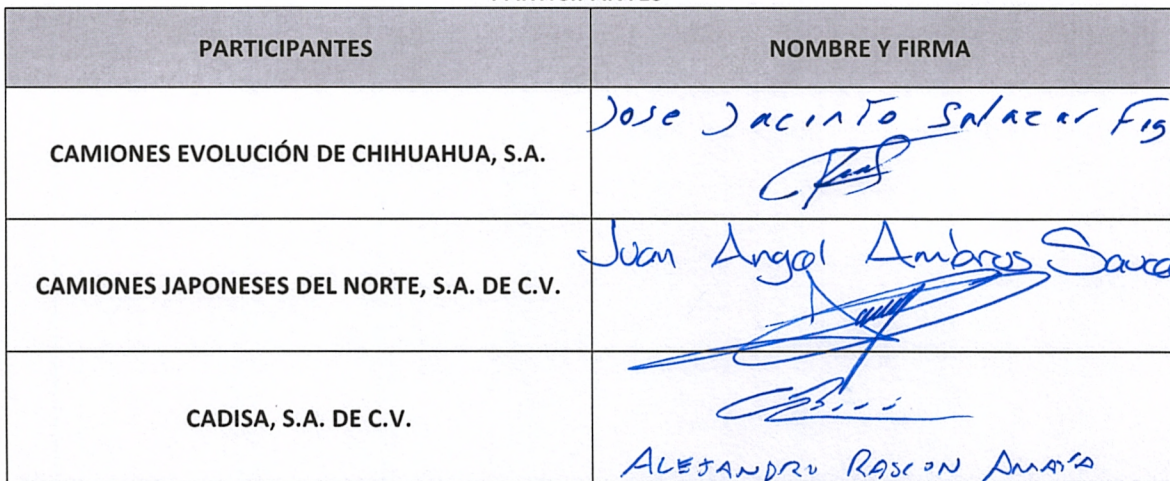 PARTICIPANTES
NOMBRE Y FIRMA
CAMIONES EVOLUCIÓN DE CHIHUAHUA, S.A.
Jose Jacinto Salazar Fig
CAMIONES JAPONESES DEL NORTE, S.A. DE C.V.
Juan Angel Ambros Sauce
CADISA, S.A. DE C.V.
ALEJANDRO RASCON AMAYA